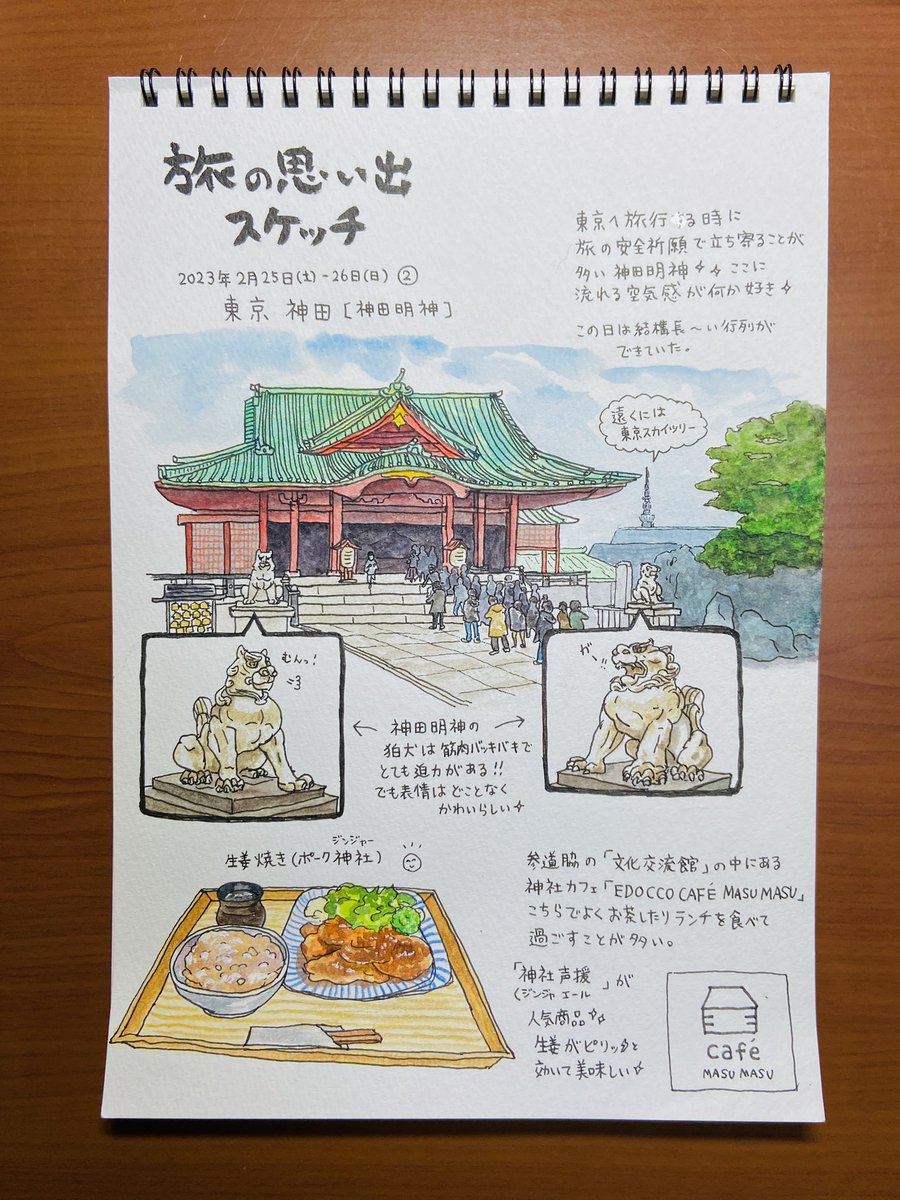 旅の思い出
スケッチ
2023年2月25日(土)-26日(日) ②
東京 神田 [神田明神]
東京へ旅行する時に
旅の安全祈願で立ち寄ることが
多い 神田明神 ここに
流れる空気感が何か好き
この日は結構長〜い行列が
できていた。
遠くには
東京スカイツリー
むんっ!
ガッ!!
← 神田明神の →
狛犬は筋肉バッキバキで
とても迫力がある!!
でも表情はどことなく
かわいらしい
ジンジャー
生姜焼き(ポーク神社)
参道脇の「文化交流館」の中にある
神社カフェ「EDOCCO CAFÉ MASU MASU」
こちらでよくお茶したりランチを食べて
過ごすことが多い。
「神社声援」が
(ジンジャエール
人気商品
生姜がピリッと
効いて美味しい
café
MASU MASU